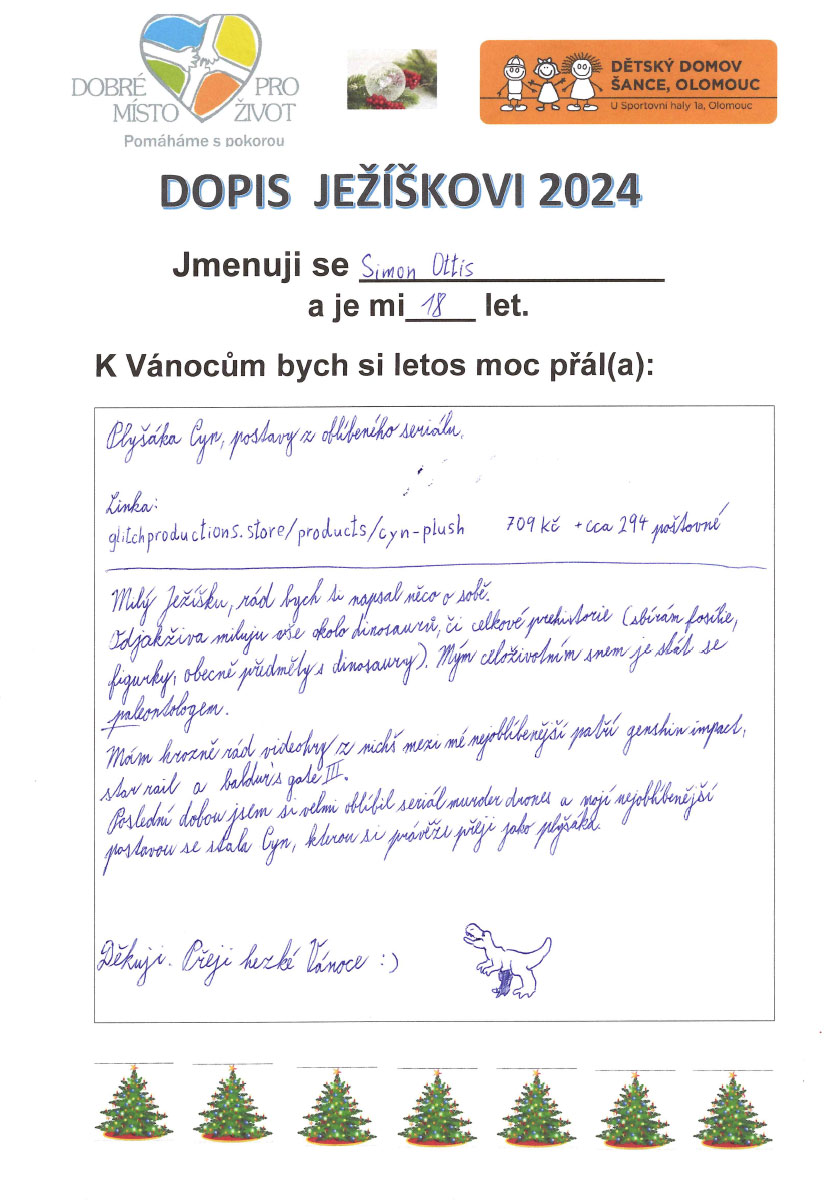 DOBRÉ PRO
MÍSTO ŽIVOT
Pomáháme s pokorou
DĚTSKÝ DOMOV
ŠANCE, OLOMOUC
U Sportovní haly 1a, Olomouc
DOPIS JEŽÍŠKOVI 2024
Jmenuji se Simon Ottis
a je mi 18 let.
K Vánocům bych si letos moc přál(a):
Plyšáka Cyn, postavy z oblíbeného seriálu.
Linka:
glitchproductions.store/products/cyn-plush 709 kč + cca 294 poštovné
Milý Ježíšku, rád bych ti napsal něco o sobě.
Odjakživa miluju vše okolo dinosaurů, či celkové prehistorie (sbírám fosílie,
figurky, obecně předměty s dinosaury). Mým celoživotním snem je stát se
paleontologem.
Mám hrozně rád videohry z nichš mezi mé nejoblíbenější patří genshin impact,
star rail a baldur's gate III.
Poslední dobou jsem si velmi oblíbil seriál murder drones a mojí nejoblíbenější
postavou se stala Cyn, kterou si právěže přeji jako plyšáka.
Děkuji. Přeji hezké Vánoce :)